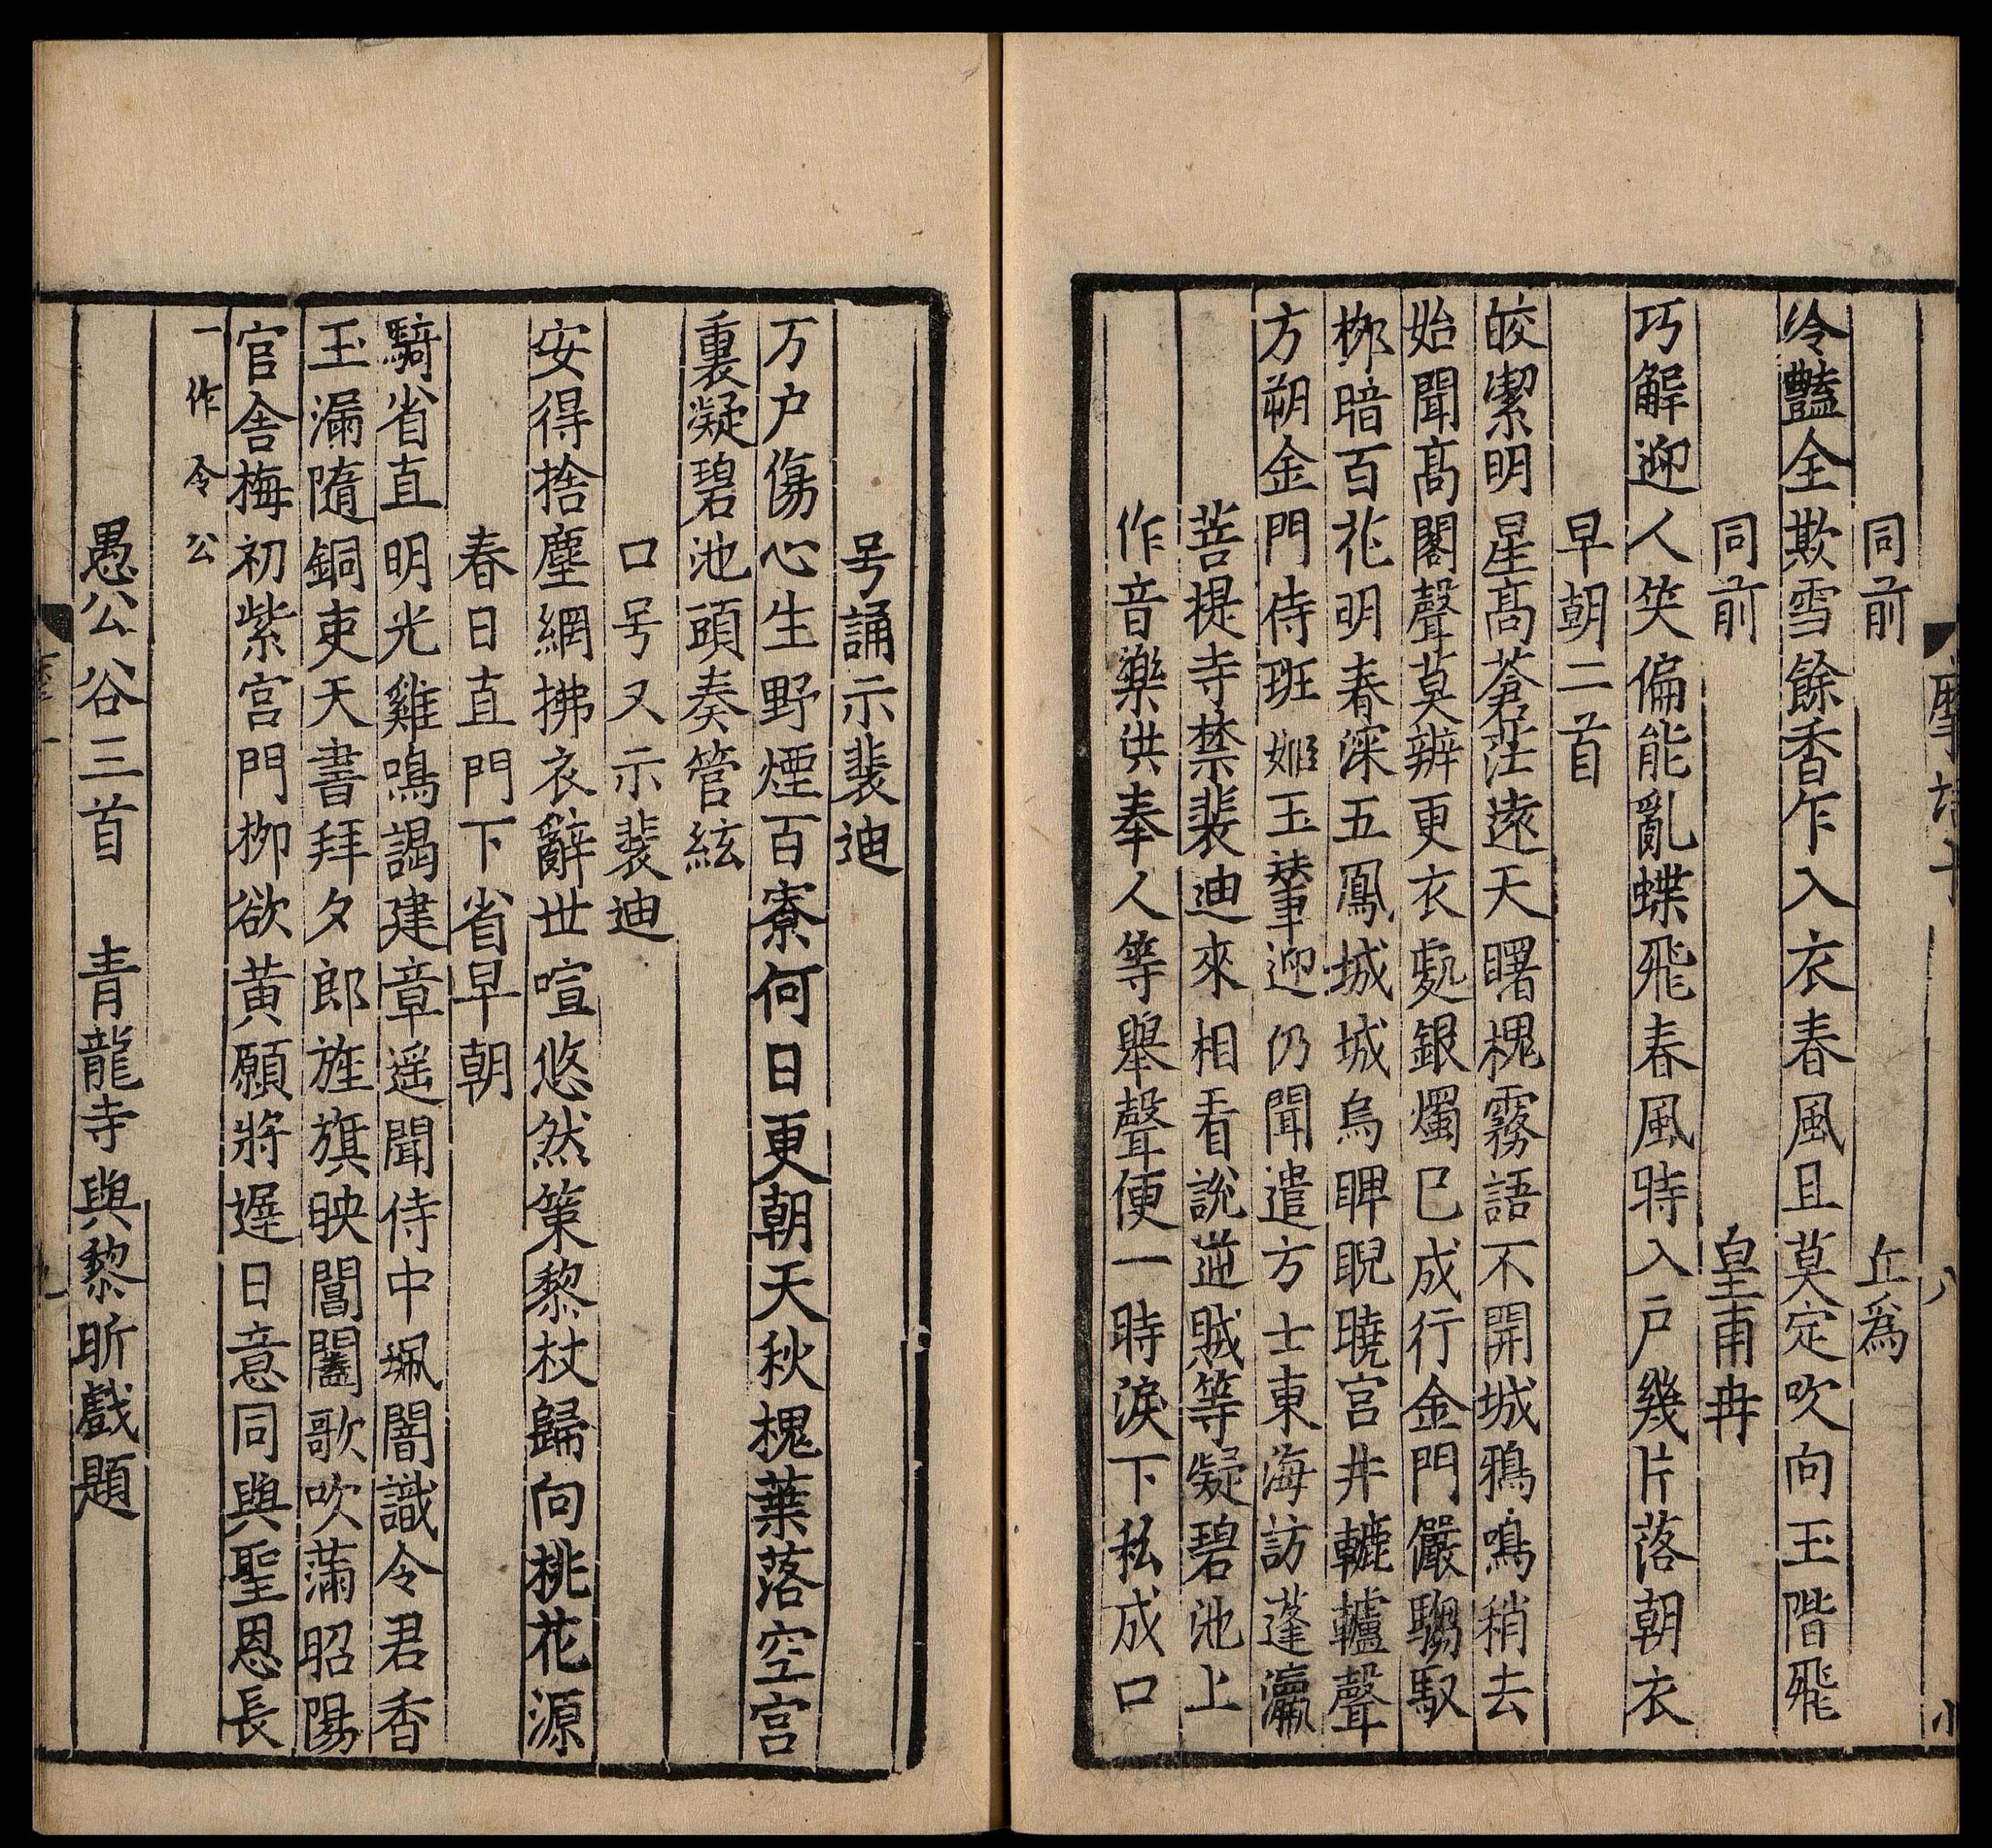 同前　丘爲
冷豔全欺雪餘香乍入衣春風且莫定吹向玉階飛
同前　皇甫冉
巧解迎人笑偏能亂蝶飛春風時入戶幾片落朝衣
早朝二首
皎潔明星高蒼茫遠天曙槐霧語不開城鴉鳴稍去
始聞高閣聲莫辨更衣處銀燭已成行金門儼騶馭
栁暗百花明春深五鳳城城烏睥睨曉宮井轆轤聲
方朔金門侍班姬玉輦迎仍聞遣方士東海訪蓬瀛
菩提寺禁裴迪來相看說逆賊等凝碧池上
作音樂供奉人等舉聲便一時淚下私成口
号誦示裴迪
万户傷心生野煙百寮何日更朝天秋槐葉落空宫
裏凝碧池頭奏管絃
口号又示裴迪
安得捨塵網拂衣辭世喧悠然策黎杖歸向桃花源
春日直門下省早朝
騎省直明光雞鳴謁建章遥聞侍中珮闇識令君香
玉漏隋銅吏天書拜夕郎旌旗映閶闔歌吹滿昭陽
官舎梅初紫宫門栁欲黄願將遲日意同與聖恩長
一作令公
愚公谷三首　青龍寺與黎昕戲題